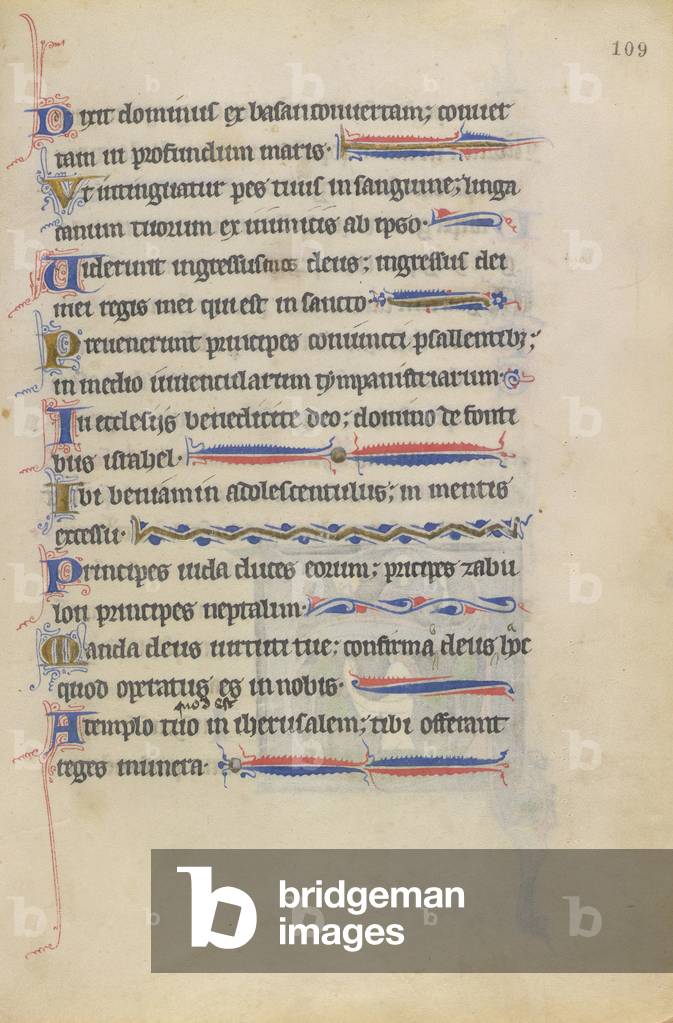 109
Dixit dominus ex basan conuertam; conuer
tam in profundum maris.
Vt intinguatur pes tuus in sanguine; linga
canum tuorum ex inimicis ab ipso.
Uiderunt ingressus tuos deus; ingressus dei
mei regis mei qui est in sancto.
Preuenerunt principes coniuncti psallentibz;
in medio iuuencularum tympanistriarum.
In ecclesijs benedicite deo; domino de fonti
bus israhel.
Ibi beniamin adolescentulus; in mentis
excessu.
Principes iuda duces eorum; pricipes zabu
lon principes neptalim.
Manda deus uirtuti tue: confirma deus hoc
quod operatus es in nobis.
quod est
A templo tuo in iherusalem; tibi offerant
reges munera.
bridgeman
images